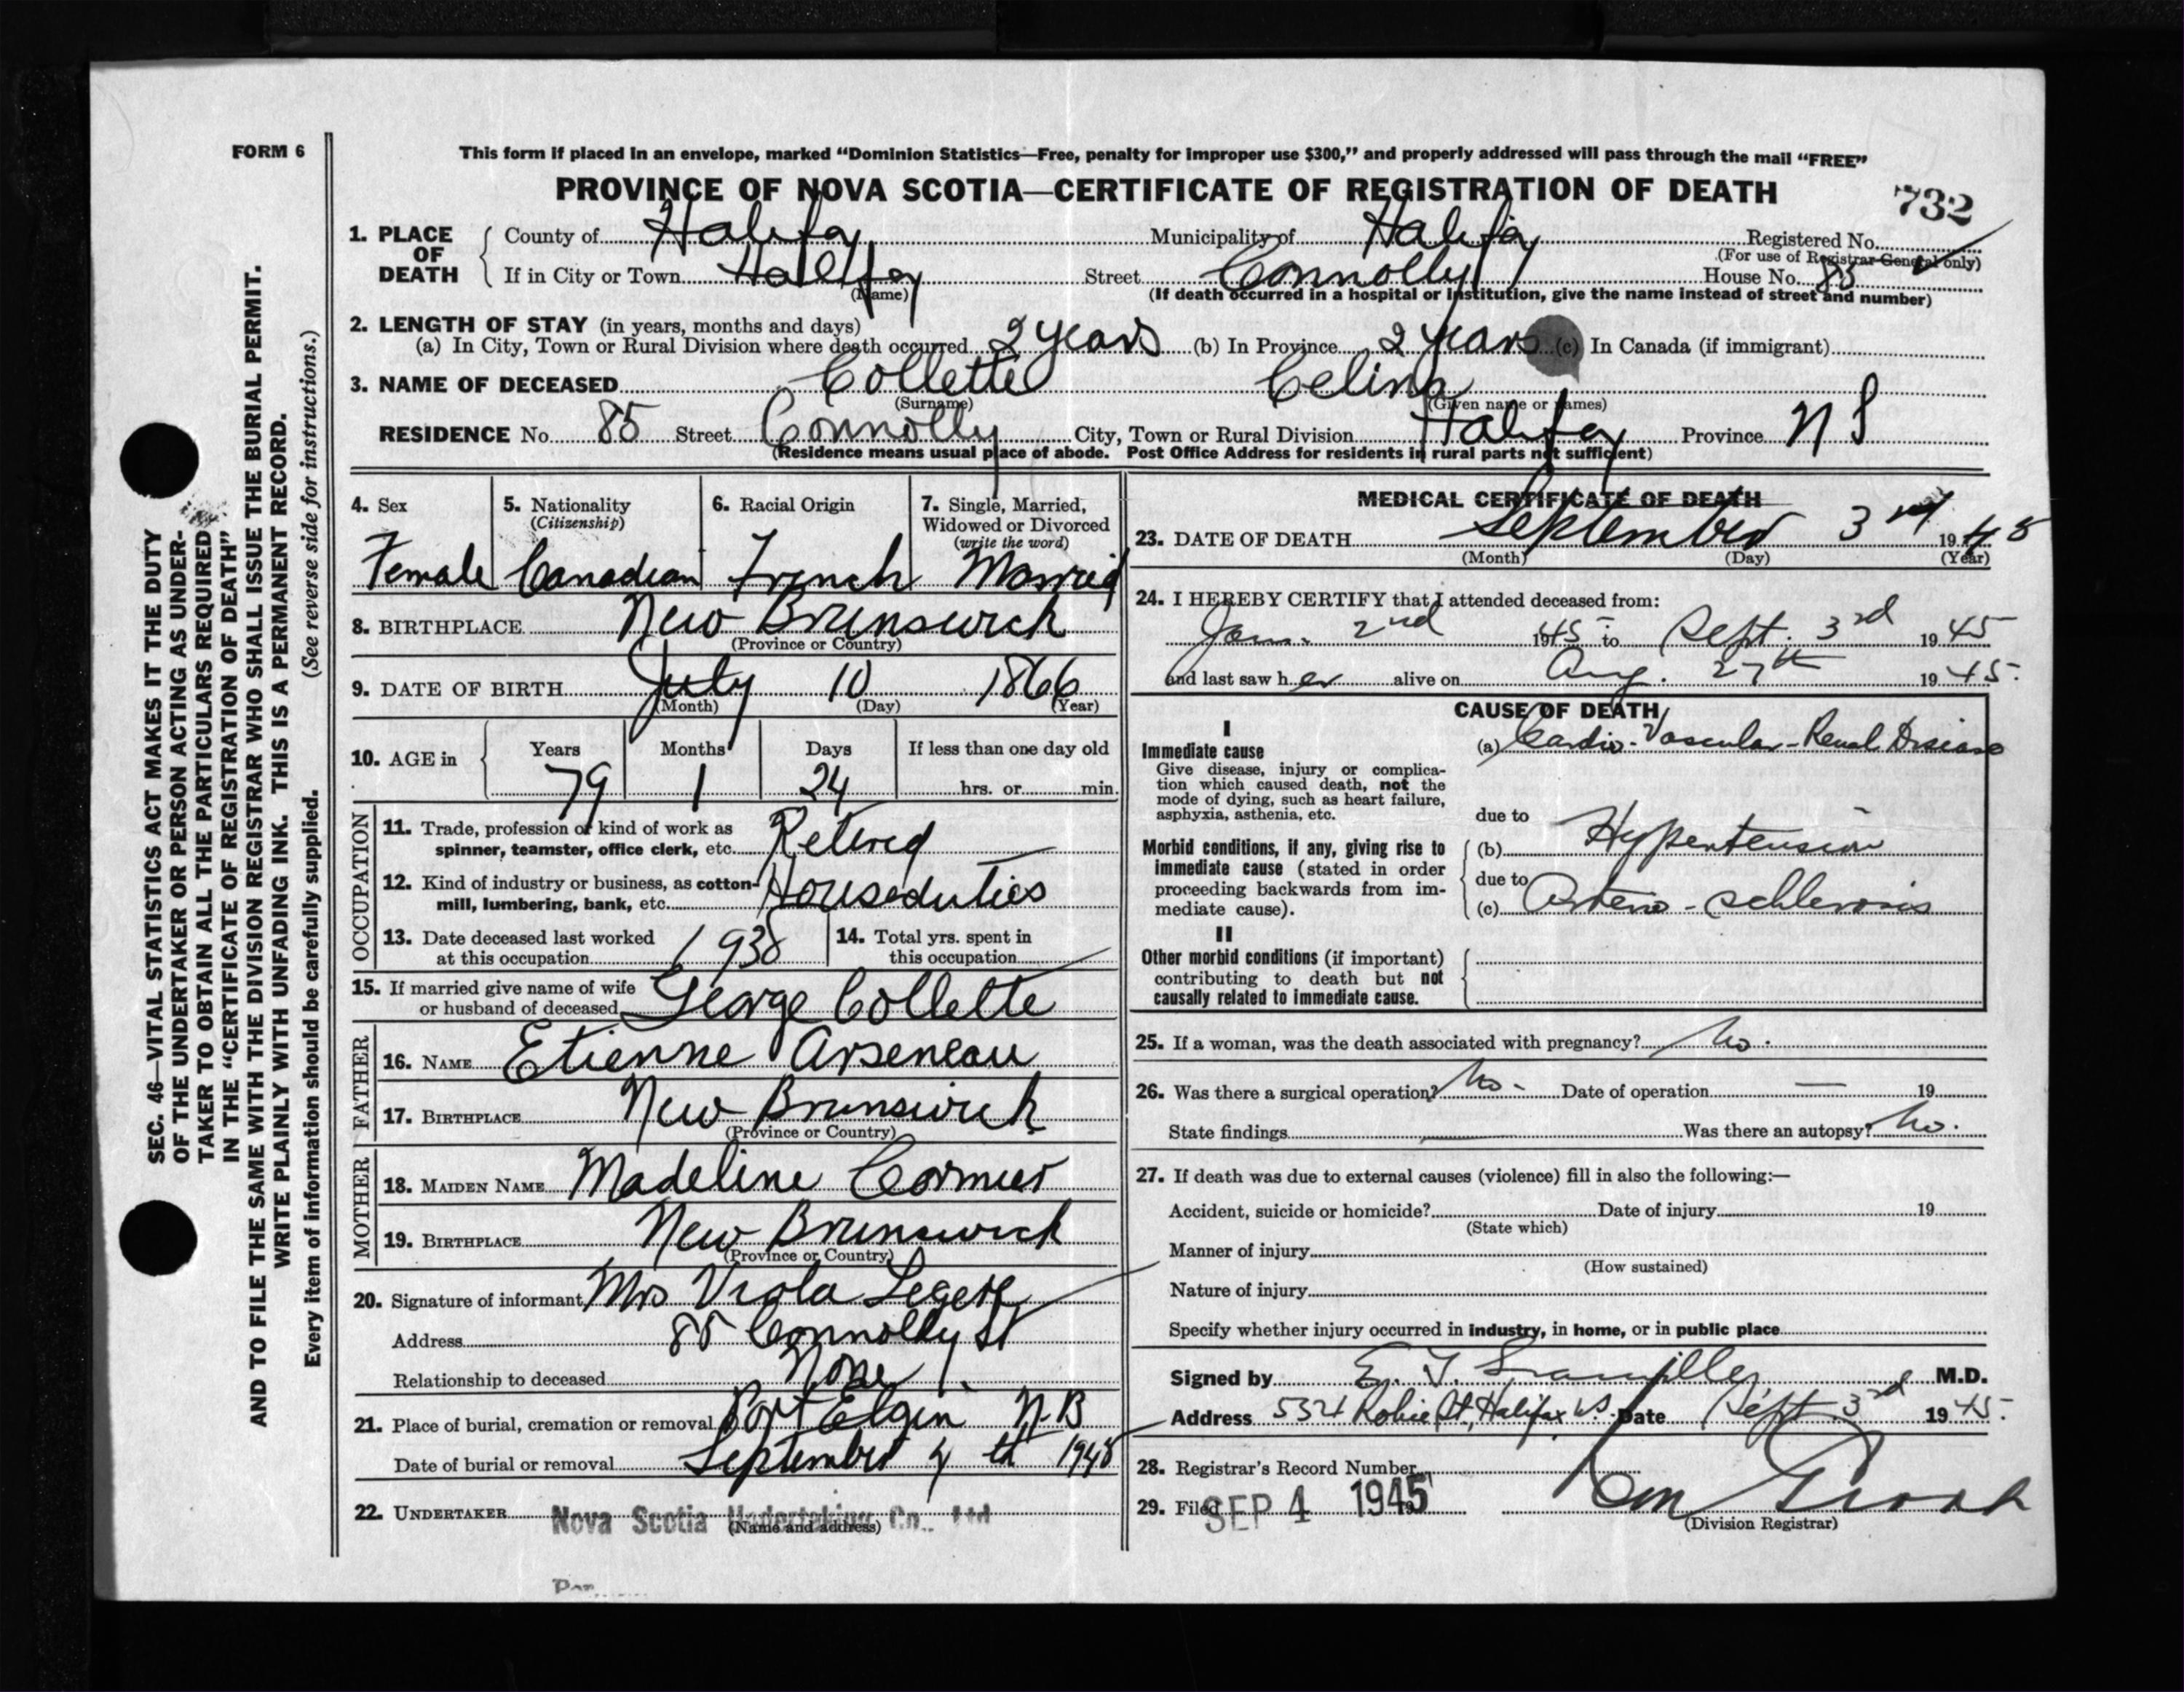 FORM 6
This form if placed in an envelope, marked “Dominion Statistics—Free, penalty for improper use $300,” and properly addressed will pass through the mail “FREE”
PROVINCE OF NOVA SCOTIA—CERTIFICATE OF REGISTRATION OF DEATH
732
1. PLACE OF DEATH County of Halifax Municipality of Halifax Registered No.
(For use of Registrar General only)
If in City or Town Halifax Street Connolly House No. 85
(Name) (If death occurred in a hospital or institution, give the name instead of street and number)
2. LENGTH OF STAY (in years, months and days)
(a) In City, Town or Rural Division where death occurred 2 years (b) In Province 2 years (c) In Canada (if immigrant)
3. NAME OF DECEASED Collette Celina
(Surname) (Given name or names)
RESIDENCE No. 85 Street Connolly City, Town or Rural Division Halifax Province N S
(Residence means usual place of abode. Post Office Address for residents in rural parts not sufficient)
4. Sex 5. Nationality (Citizenship) 6. Racial Origin 7. Single, Married, Widowed or Divorced (write the word)
Female Canadian French Married
8. BIRTHPLACE New Brunswick
(Province or Country)
9. DATE OF BIRTH July 10 1866
(Month) (Day) (Year)
10. AGE in Years Months Days If less than one day old
79 1 24 hrs. or min.
OCCUPATION
11. Trade, profession or kind of work as
spinner, teamster, office clerk, etc. Retired
12. Kind of industry or business, as cotton-
mill, lumbering, bank, etc. Houseduties
13. Date deceased last worked
at this occupation 1938
14. Total yrs. spent in
this occupation
15. If married give name of wife
or husband of deceased George Collette
FATHER
16. NAME Etienne Arseneau
17. BIRTHPLACE New Brunswick
(Province or Country)
MOTHER
18. MAIDEN NAME Madeline Cormier
19. BIRTHPLACE New Brunswick
(Province or Country)
20. Signature of informant Mrs Viola Legere
Address 85 Connolly St
Relationship to deceased None
21. Place of burial, cremation or removal Port Elgin N.B
Date of burial or removal September 4 th 1945
22. UNDERTAKER Nova Scotia Undertaking Co., Ltd
(Name and address)
MEDICAL CERTIFICATE OF DEATH
23. DATE OF DEATH September 3rd 1945
(Month) (Day) (Year)
24. I HEREBY CERTIFY that I attended deceased from:
Jan. 2nd 1945 to Sept. 3rd 1945
and last saw her alive on Aug. 27th 1945.
CAUSE OF DEATH
I
Immediate cause
Give disease, injury or complica-
tion which caused death, not the
mode of dying, such as heart failure,
asphyxia, asthenia, etc.
(a) Cardio-Vascular-Renal Disease
due to
Morbid conditions, if any, giving rise to
immediate cause (stated in order
proceeding backwards from im-
mediate cause).
(b) Hypertension
due to
(c) Arterio-schlerosis
II
Other morbid conditions (if important)
contributing to death but not
causally related to immediate cause.
25. If a woman, was the death associated with pregnancy? No.
26. Was there a surgical operation? No- Date of operation — 19
State findings Was there an autopsy? No.
27. If death was due to external causes (violence) fill in also the following:—
Accident, suicide or homicide? Date of injury 19
(State which)
Manner of injury
(How sustained)
Nature of injury
Specify whether injury occurred in industry, in home, or in public place
Signed by E. T. Granville M.D.
Address 532 Robie St, Halifax N.S. Date Sept 3rd 1945.
28. Registrar's Record Number
29. Filed SEP 4 1945 19
(Division Registrar)
SEC. 46—VITAL STATISTICS ACT MAKES IT THE DUTY
OF THE UNDERTAKER OR PERSON ACTING AS UNDER-
TAKER TO OBTAIN ALL THE PARTICULARS REQUIRED
IN THE “CERTIFICATE OF REGISTRATION OF DEATH”
AND TO FILE THE SAME WITH THE DIVISION REGISTRAR WHO SHALL ISSUE THE BURIAL PERMIT.
WRITE PLAINLY WITH UNFADING INK. THIS IS A PERMANENT RECORD.
Every item of information should be carefully supplied. (See reverse side for instructions.)